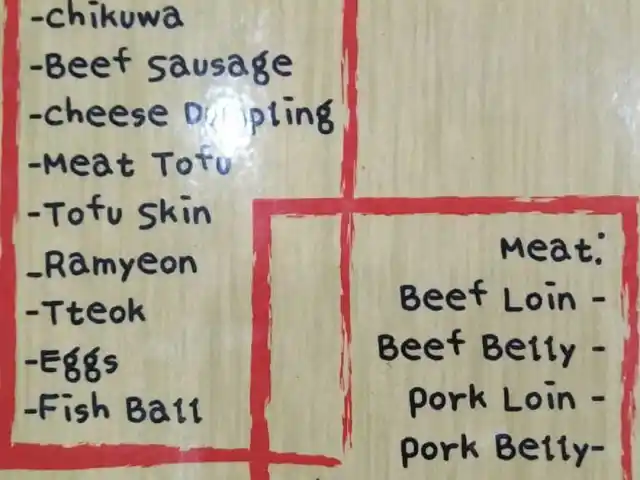 -Chikuwa
-Beef Sausage
-Cheese Dumpling
-Meat Tofu
-Tofu Skin
-Ramyeon
-Tteok
-Eggs
-Fish Ball
Meat:
Beef Loin -
Beef Belly -
Pork Loin -
Pork Belly-